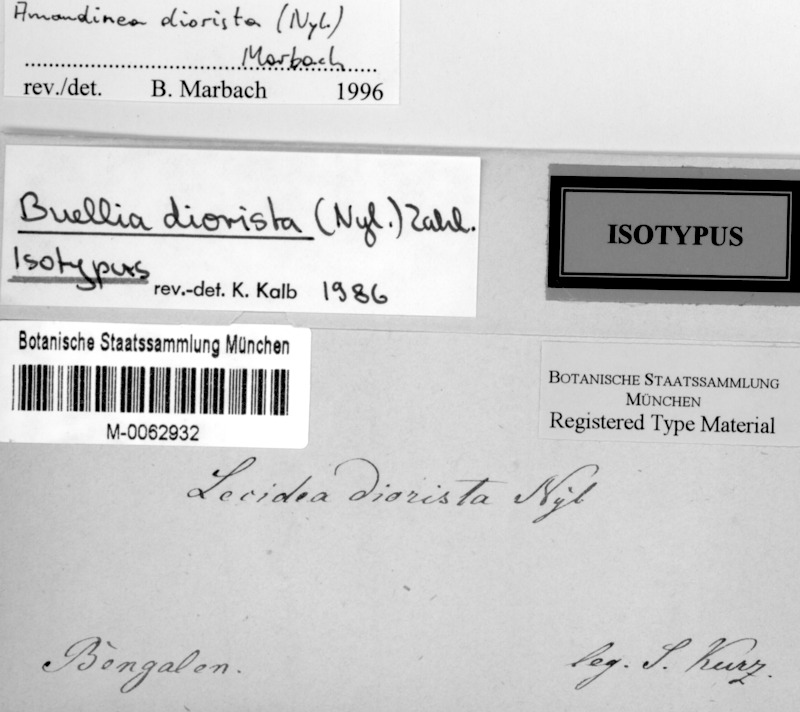 Amandinea diorista (Nyl.)
Marbach
rev./det. B. Marbach 1996
Buellia diorista (Nyl.) Zahl.
Isotypus
rev.-det. K. Kalb 1986
ISOTYPUS
Botanische Staatssammlung München
M-0062932
BOTANISCHE STAATSSAMMLUNG
MÜNCHEN
Registered Type Material
Lecidea diorista Nyl
Bengalen.
leg. S. Kurz.